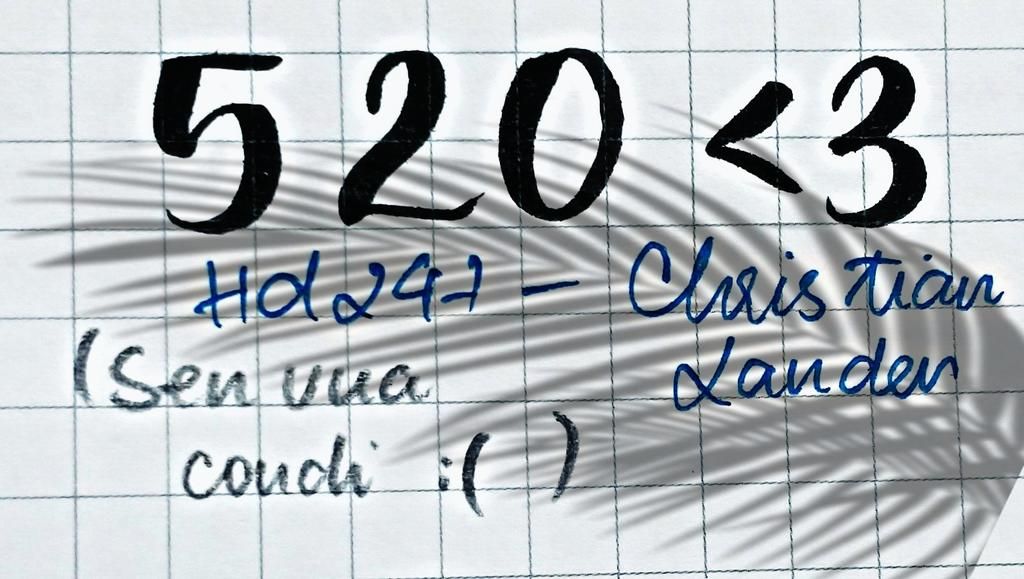 520 <3
Hd247 - Christian
Lander
(Sen vua
coudi :( )